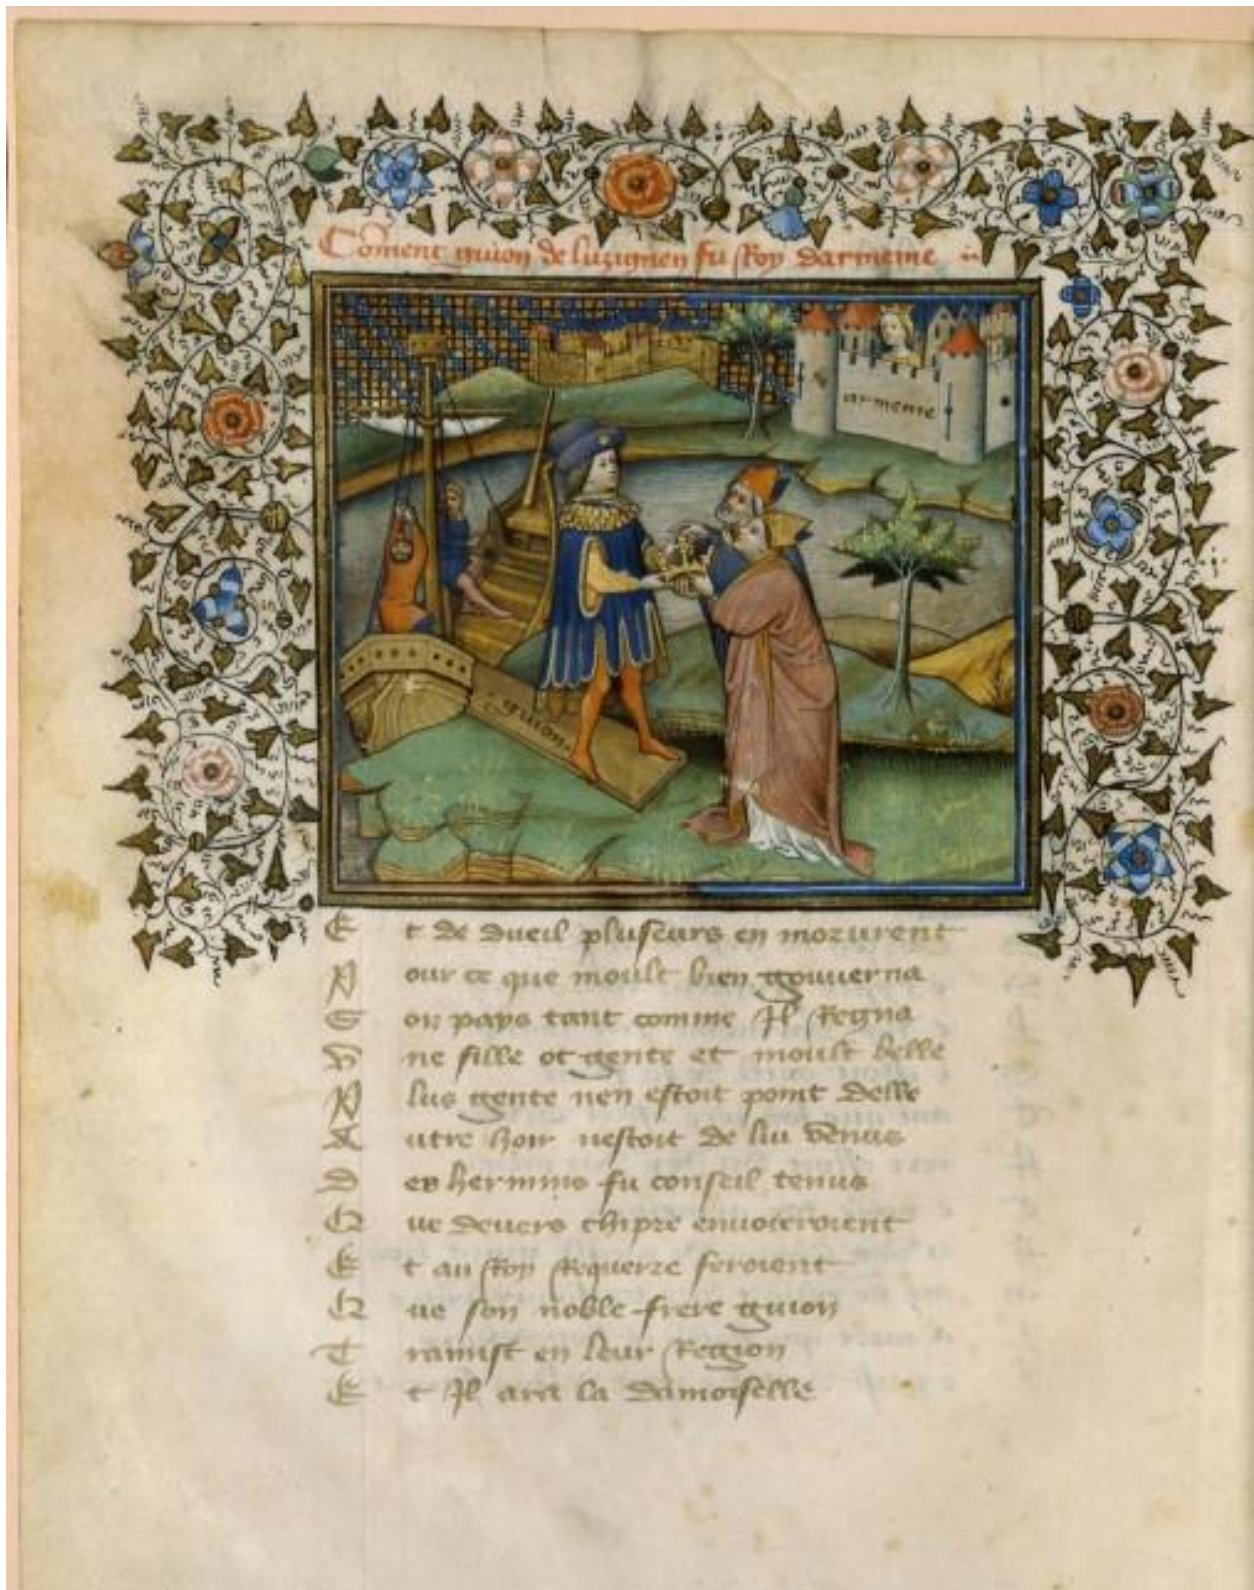 Coment guion de luzignen fu Roy darmenie
armenie
guion
Et de dueil pluseurs en morurent
Pour ce que moult bien gouuerna
Son pays tant comme Il Regna
Vne fille ot gente et moult belle
Plus gente nen estoit point delle
Autre hoir nestoit de lui venus
Des hermins fu conseil tenus
Que deuers chipre enuoieroient
Et au Roy Requerre feroient
Que son noble frere guion
Tramist en leur Region
Et Il ara la damoiselle